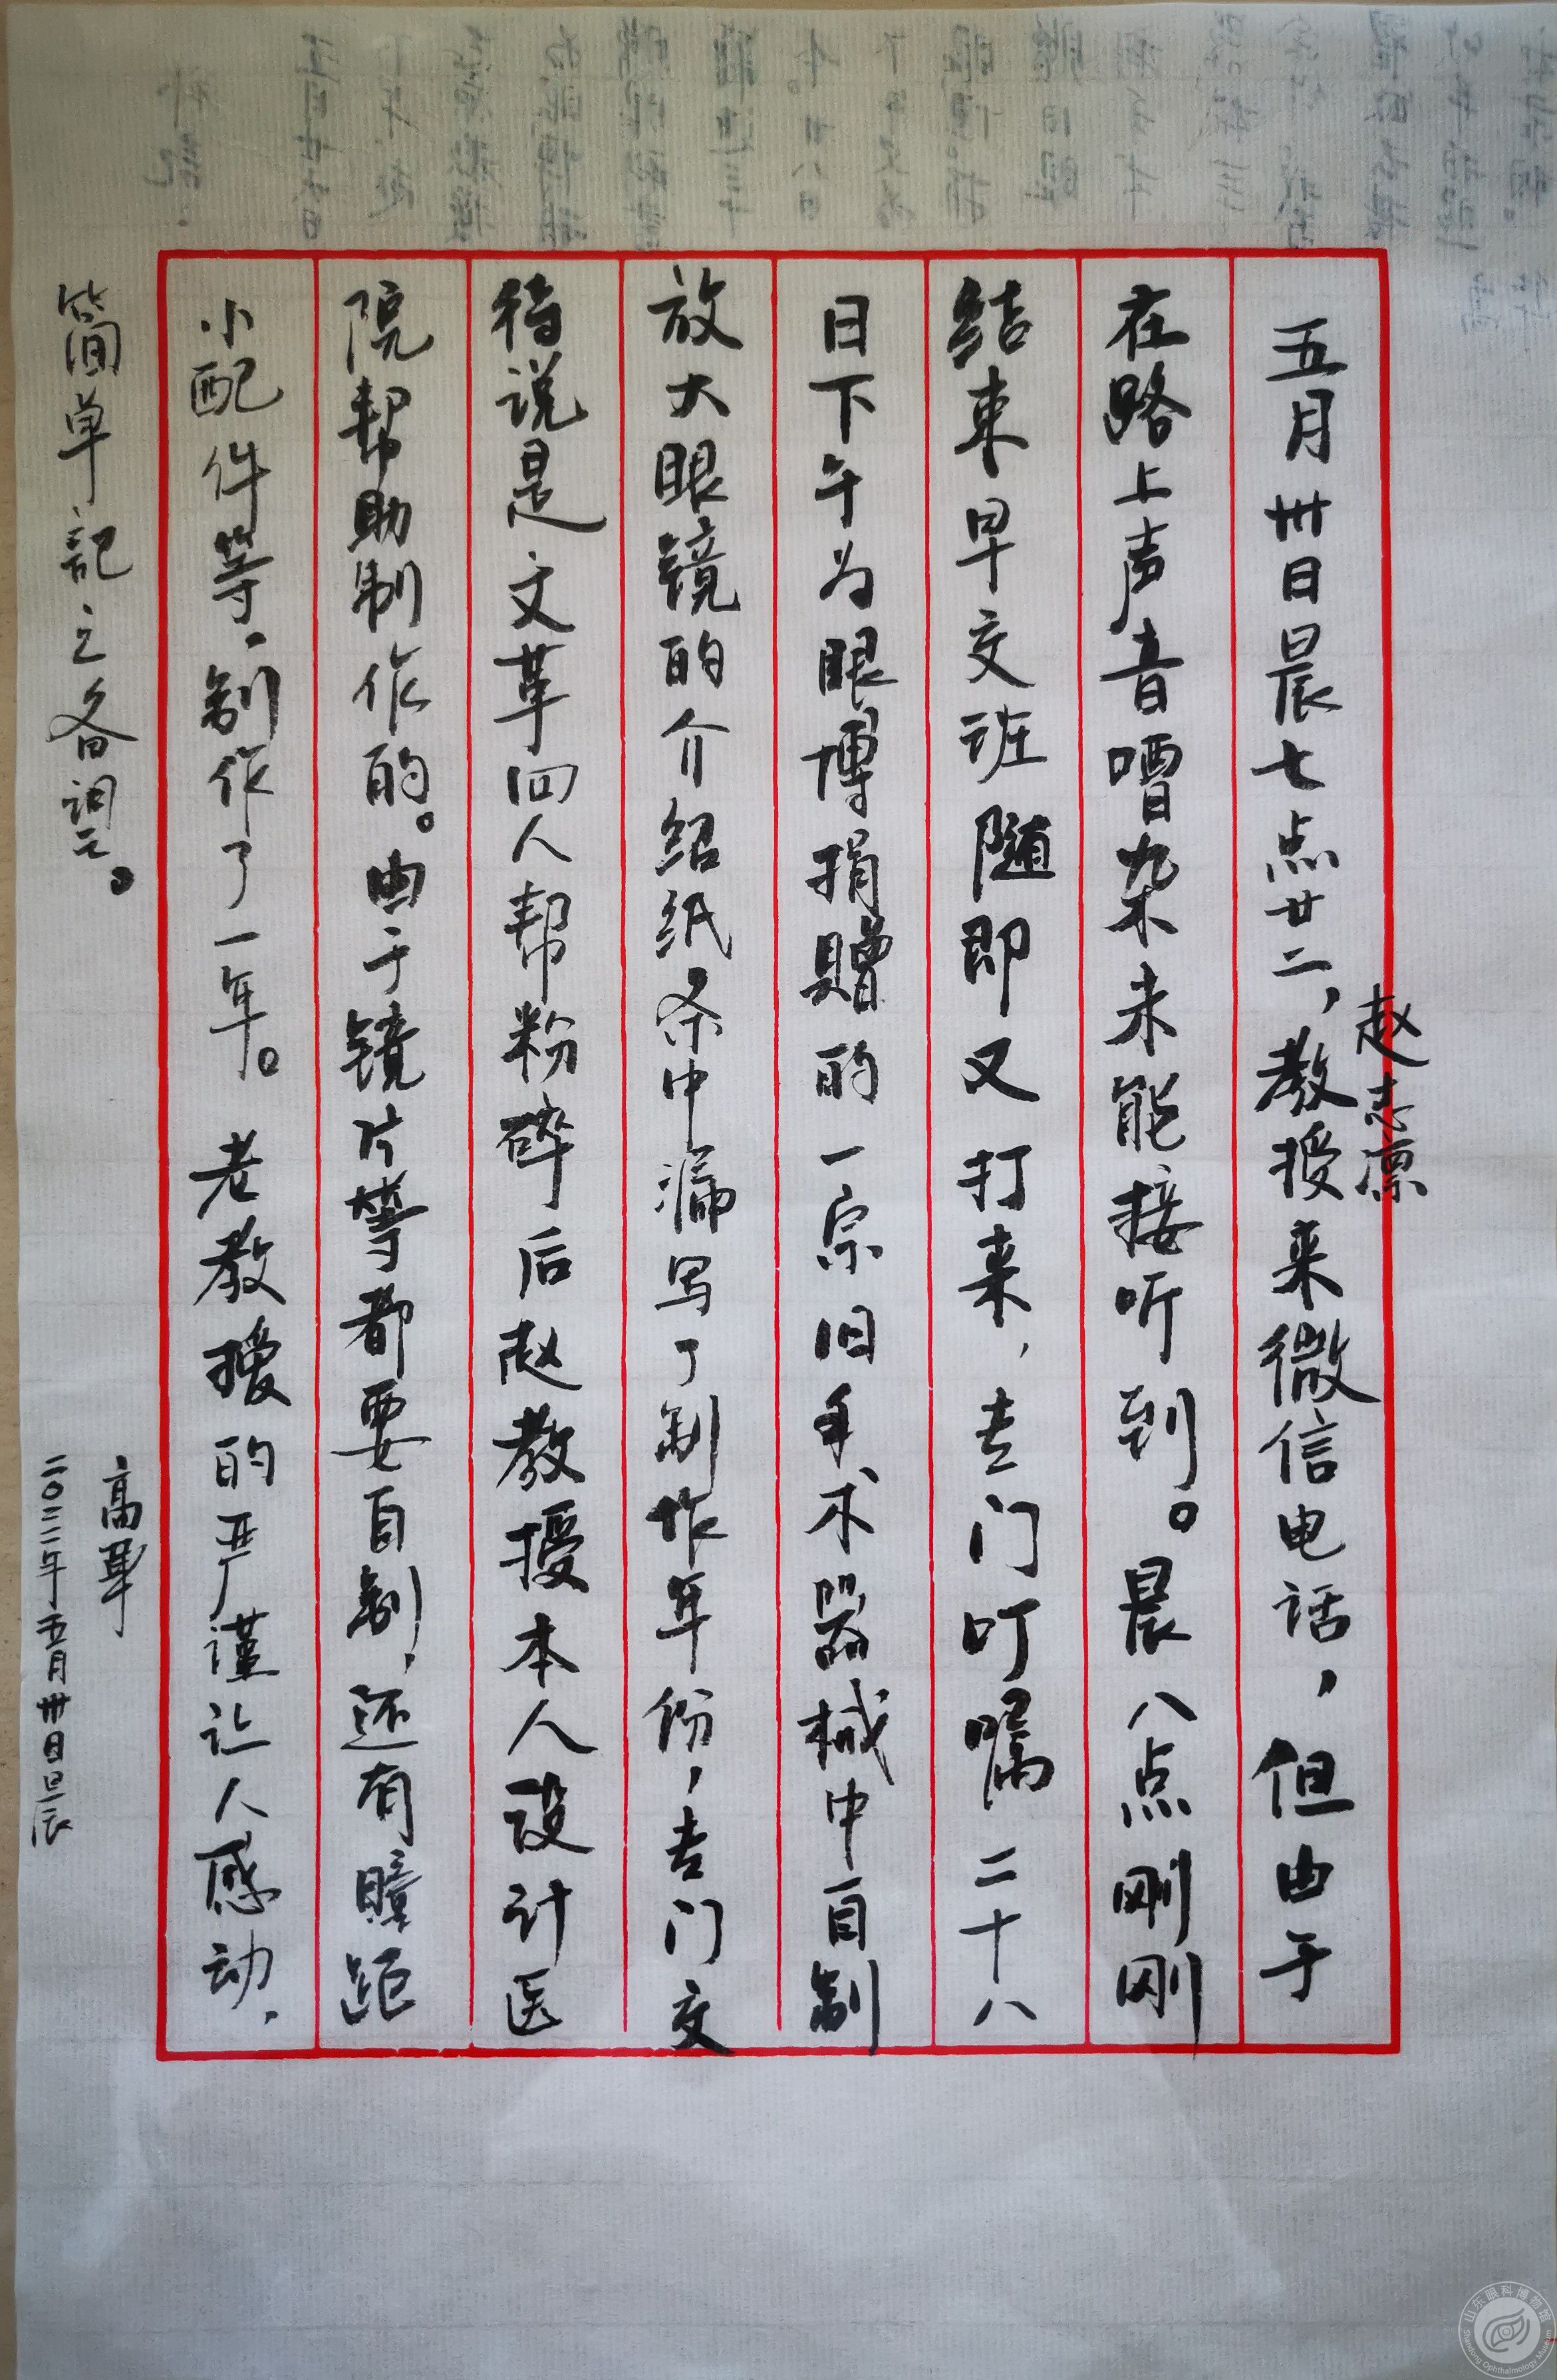 五月卅日晨七点廿二，教授来微信电话，但由于
赵志凛
在路上声音嘈杂未能接听到。晨八点刚刚
结束早交班随即又打来，专门叮嘱二十八
日下午为眼博捐赠的一宗旧手术器械中自制
放大眼镜的介绍纸条中漏写了制作年份，专门交
待说是文革四人帮粉碎后赵教授本人设计医
院帮助制作的。由于镜片等都要自制，还有瞳距
小配件等，制作了一年。老教授的严谨让人感动，
简单记之备调云。
高華
二〇二二年五月卅日晨
山东眼科博物馆
Shandong Ophthalmology Museum